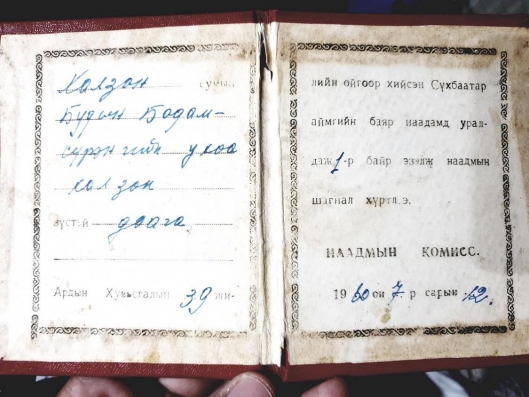 Халзан сумын
Будын Бадам-
сүрэнгийн улаа
халзан
зүстэй даага
Ардын Хувьсгалын 39 жи-
лийн ойгоор хийсэн Сүхбаатар
аймгийн баяр наадамд урал-
дэж 1-р байр эзэлж наадмын
шагнал хүртлэ.
НААДМЫН КОМИСС.
1960 он 7-р сарын 12.